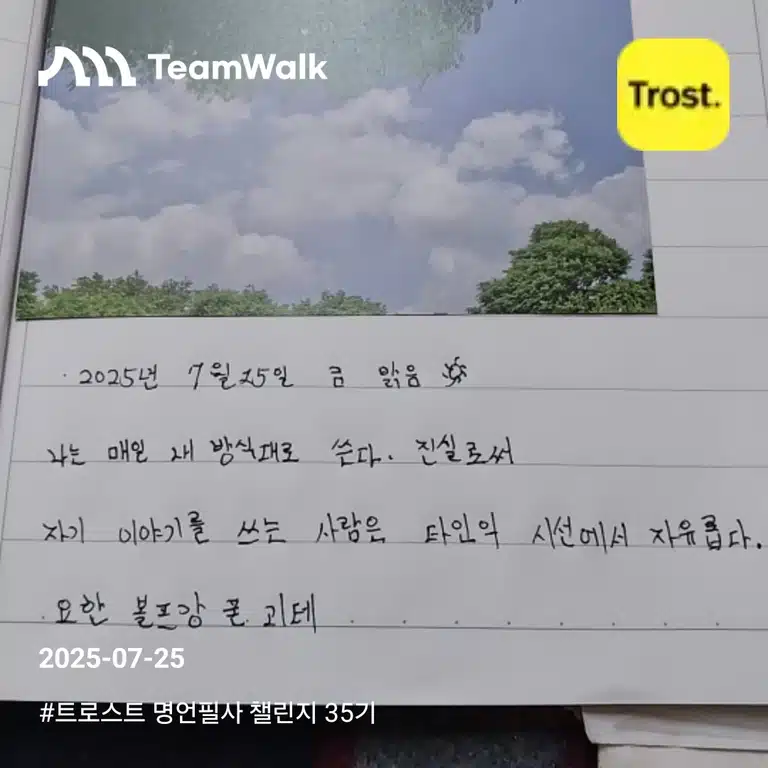 TeamWalk
Trost.
· 2025년 7월 25일 금 맑음
나는 매일 내 방식대로 쓴다. 진실로써
자기 이야기를 쓰는 사람은 타인의 시선에서 자유롭다.
· 요한 볼프강 폰 괴테 · · · · · · ·
2025-07-25
#트로스트 명언필사 챌린지 35기